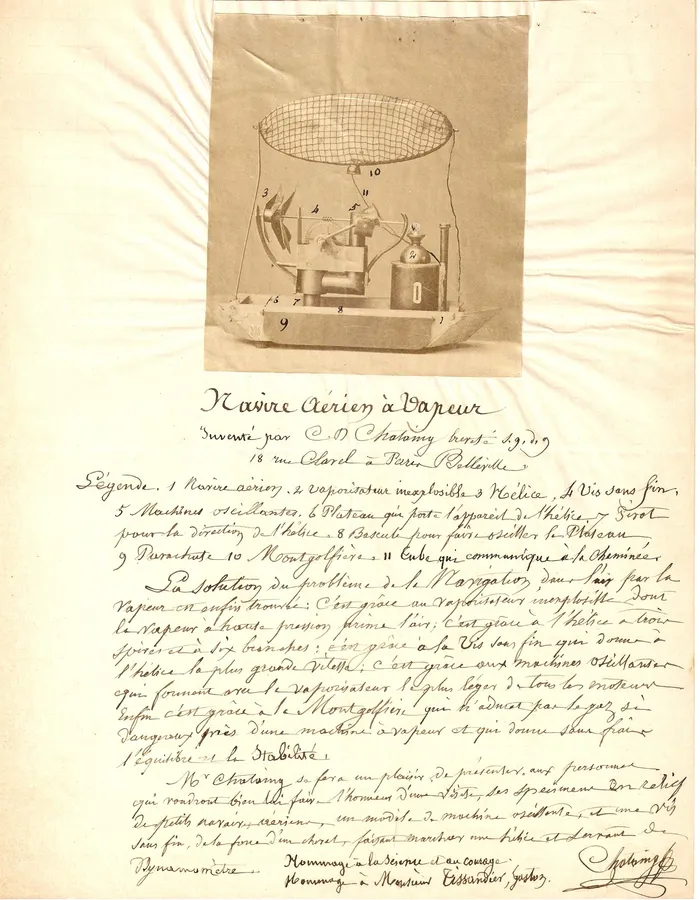 10
11
3
4
5
2
6
7
8
1
9
Navire Aérien à Vapeur
Inventé par C. D Chataing breveté s.g.d.g
18 rue Clavel à Paris Belleville
Légende. 1 Navire aérien. 2 vaporisateur inexplosible 3 Hélice, 4 Vis sans fin,
5 Machines oscillantes. 6 Plateau qui porte l'appareil de l'hélice. 7 Pivot
pour la direction de l'hélice. 8 Bascule pour faire osciller le Plateau
9 Parachute 10 Montgolfière. 11 Tube qui communique à la Cheminée
La solution du problème de la Navigation dans l'air par la
vapeur est enfin trouvée: C'est grâce au vaporisateur inexplosible dont
la vapeur à haute pression prime l'air; c'est grâce à l'hélice à trois
spires et à six branches; c'est grâce à la Vis sans fin qui donne à
l'hélice la plus grande vitesse; c'est grâce aux machines oscillantes
qui forment avec le vaporisateur le plus léger de tous les moteurs
Enfin c'est grâce à la Montgolfière qui n'admet pas le gaz si
dangereux près d'une machine à vapeur et qui donne sans frais
l'équilibre et la Stabilité.
Mr Chataing se fera un plaisir de présenter aux personnes
qui voudront bien lui faire l'honneur d'une visite, ses specimens en relief
de petits navires aeriens, un modèle de machine oscillante, et une Vis
sans fin, de la force d'un cheval, faisant marcher une hélice et servant de
Dynamomètre.
Hommage à la Science et au courage.
Hommage à Monsieur Tissandier, Gaston.
Chataing